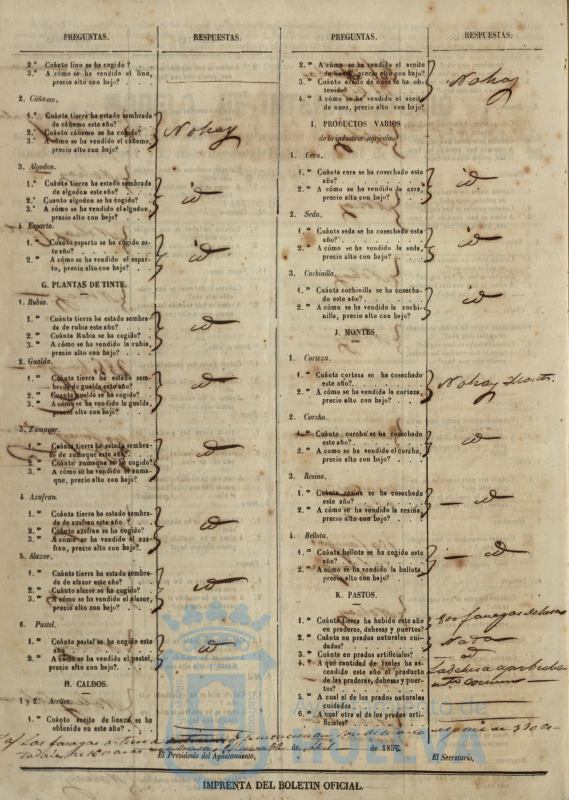 PREGUNTAS.
RESPUESTAS.
2.ª Cuánto lino se ha cogido?
3.ª A cómo se ha vendido el lino,
precio alto con bajo?
2. Cáñamo.
1.ª Cuánta tierra ha estado sembrada
de cáñamo este año?
2.ª Cuánto cáñamo se ha cogido?
3.ª A cómo se ha vendido el cáñamo,
precio alto con bajo?
No hay
3. Algodon.
1.ª Cuánta tierra ha estado sembrada
de algodon este año?
2.ª Cuánto algodon se ha cogido?
3.ª A cómo se ha vendido el algodon,
precio alto con bajo?
id
4. Esparto.
1.ª Cuánto esparto se ha cogido es-
te año?
2.ª A cómo se ha vendido el espar-
to, precio alto con bajo?
id
G. PLANTAS DE TINTE.
1. Rubia.
1.ª Cuánta tierra ha estado sembra-
da de rubia este año?
2.ª Cuánta Rubia se ha cogido?
3.ª A cómo se ha vendido la rubia,
precio alto con bajo?
id
2. Gualda.
1.ª Cuánta tierra ha estado sem-
brada de gualda este año?
2.ª Cuanta gualda se ha cogido?
3.ª A cómo se ha vendido la gualda,
precio alto con bajo?
id
3. Zumaque.
1.ª Cuánta tierra ha estado sembra-
da de zumaque este año?
2.ª Cuánto zumaque se ha cogido?
3.ª A cómo se ha vendido el zuma-
que, precio alto con bajo?
id
4. Azafran.
1.ª Cuánta tierra ha estado sembra-
da de azafran este año?
2.ª Cuánto azafran se ha cogido?
3.ª A cómo se ha vendido el aza-
fran, precio alto con bajo?
id
5. Alazor.
1.ª Cuánta tierra ha estado sembra-
da de alazor este año?
2.ª Cuánto alazor se ha cogido?
3.ª A cómo se ha vendido el alazor,
precio alto con bajo?
id
6. Pastel.
1.ª Cuánto pastel se ha cogido este
año?
2.ª A cómo se ha vendido el pastel,
precio alto con bajo?
id
H. CALDOS.
1 y 2. Aceites.
1.ª Cuánto aceite de linaza se ha
obtenido en este año?
PREGUNTAS.
RESPUESTAS:
2.ª A cómo se ha vendido el aceite
de linaza, precio alto con bajo?
3.ª Cuánto aceite de nues se ha ob-
tenido?
4.ª A cómo se ha vendido el aceite
de nues, precio alto con bajo?
No hay
I. PRODUCTOS VARIOS
de la industria agrícola.
1. Cera.
1.ª Cuánta cera se ha cosechado este
año?
2.ª A cómo se ha vendido la cera,
precio alto con bajo?
id
2. Seda.
1.ª Cuánta seda se ha cosechado este
año?
2.ª A cómo se ha vendido la seda,
precio alto con bajo?
id
3. Cochinilla.
1.ª Cuánta cochinilla se ha cosecha-
do este año?
2.ª A cómo se ha vendido la cochi-
nilla, precio alto con bajo?
id
J. MONTES.
1. Corteza.
1.ª Cuánta corteza se ha cosechado
este año?
2.ª A cómo se ha vendido la corteza,
precio alto con bajo?
No hay Montes.
2. Corcho.
1.ª Cuánto corcho se ha cosechado
este año?
2.ª A como se ha vendido el corcho,
precio alto con bajo?
id
3. Resina.
1.ª Cuánta resina se ha cosechado
este año?
2.ª A cómo se ha vendido la resina
precio alto con bajo?
— id
4. Bellota.
1.ª Cuánta bellota se ha cogido este
año?
2.ª A cómo se ha vendido la bellota,
precio alto con bajo?
— id
K. PASTOS.
1.ª Cuánta tierra ha habido este año
en praderas, dehesas y puertos?
2.ª Cuánta en prados naturales cui-
dados?
3.ª Cuánta en prados artificiales?
4.ª A qué cantidad de reales ha as-
cendido este año el producto
de las praderas, dehesas y puer-
tos?
5.ª A cual el de los prados naturales
cuidados
6.ª A cual otra el de los prados arti-
ficiales?
fanegas dehesa
Nada
id
La dehesa
comun
Las fanegas
de 1857.
El Presidente del Ayuntamiento,
El Secretario,
Ayuntamiento de
HUELVA
IMPRENTA DEL BOLETIN OFICIAL.